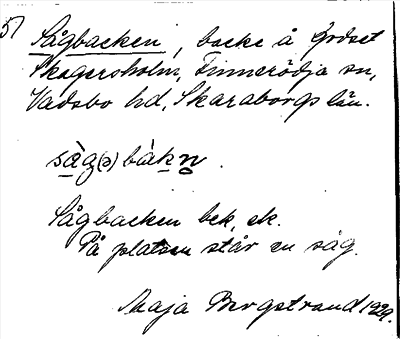 5) Sågbacken, backe å godset
Skagersholm, Finnerödja sn,
Vadsbo hd, Skaraborgs län.
sàg(ə)bàkn̥.
Sågbacken bek, ek.
På platsen står en såg.
Maja Bergstrand 1929.